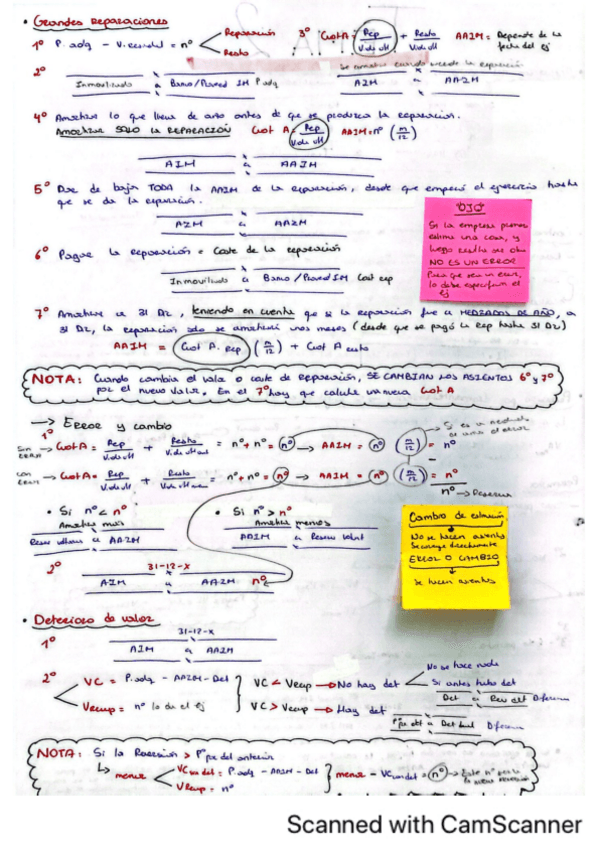 • Grandes Reparaciones
1º P. adq - V. residual = nº Reparación
Resto
3º Cuota = Rep / Vida útil + Resto / Vida útil AAIM = Depende de la fecha del ej
2º Inmovilizado a Banco/Proveed IM P. adq
Se amortiza cuando sucede la reparación
AIM a AAIM
4º Amortizar lo que lleva de año antes de que se produzca la reparación.
Amortizar SOLO LA REPARACIÓN Cuot A = Rep / Vida útil AAIM = nº (m/12)
AIM a AAIM
5º Dar de baja TODA la AAIM de la reparación, desde que empezó el ejercicio hasta
que se da la reparación.
AAIM
"OJO"
Si la empresa
estima una cosa, y
luego resulta ser otra
NO ES UN ERROR
Para que sea un error,
lo debe especificar el
ej
6º Pagar la Reparación = Coste de la reparación
Inmovilizado a Banco/Proveed IM Cost rep
7º Amortizar a 31 Dz, teniendo en cuenta que si la reparación fue a MEDIADOS DE AÑO, a
31 Dz, la reparación solo se amortiza unos meses (desde que se pagó la Rep hasta 31 Dz)
AAIM = Cuot A. Rep (m/12) + Cuot A resto
NOTA: Cuando cambia el valor o coste de Reparación, SE CAMBIAN LOS ASIENTOS 6º y 7º
por el nuevo valor. En el 7º hay que calcular una nueva Cuot A
→ Error y cambio
1º
Sin error → Cuot A = Rep / Vida útil + Resto / Vida útil = nº + nº = nº → AAIM = nº (m/12) = nº
–
Con error → Cuot A = Rep / Vida útil + Resto / Vida útil = nº + nº = nº → AAIM = nº (m/12) = nº
nº → Reservas
• Si nº < nº
Amortizar más
Reser volunt a AAIM
• Si nº > nº
Amortizar menos
AAIM a Reserv volunt
Cambio de estimación
No se hacen asientos
Se corrige directamente
ERROR O CAMBIO
Se hacen asientos
2º 31-12-X
AIM a AAIM nº
• Deterioro de valor
1º 31-12-X
AIM a AAIM
2º VC = P. adq - AAIM - Det
Vrecup = nº lo da el ej
VC < Vrecup → No hay det
No se hace nada
Si antes hubo det
Det a Rev det Diferencia
VC > Vrecup → Hay det
Pº px det a Det Diferencia
NOTA: Si la Reversión > Pº px del anterior
↳ menor VC sin det = P. adq - AAIM - Det
V Recup = nº
menor - VC con det = nº → Este nº será la nueva reversión
Scanned with CamScanner